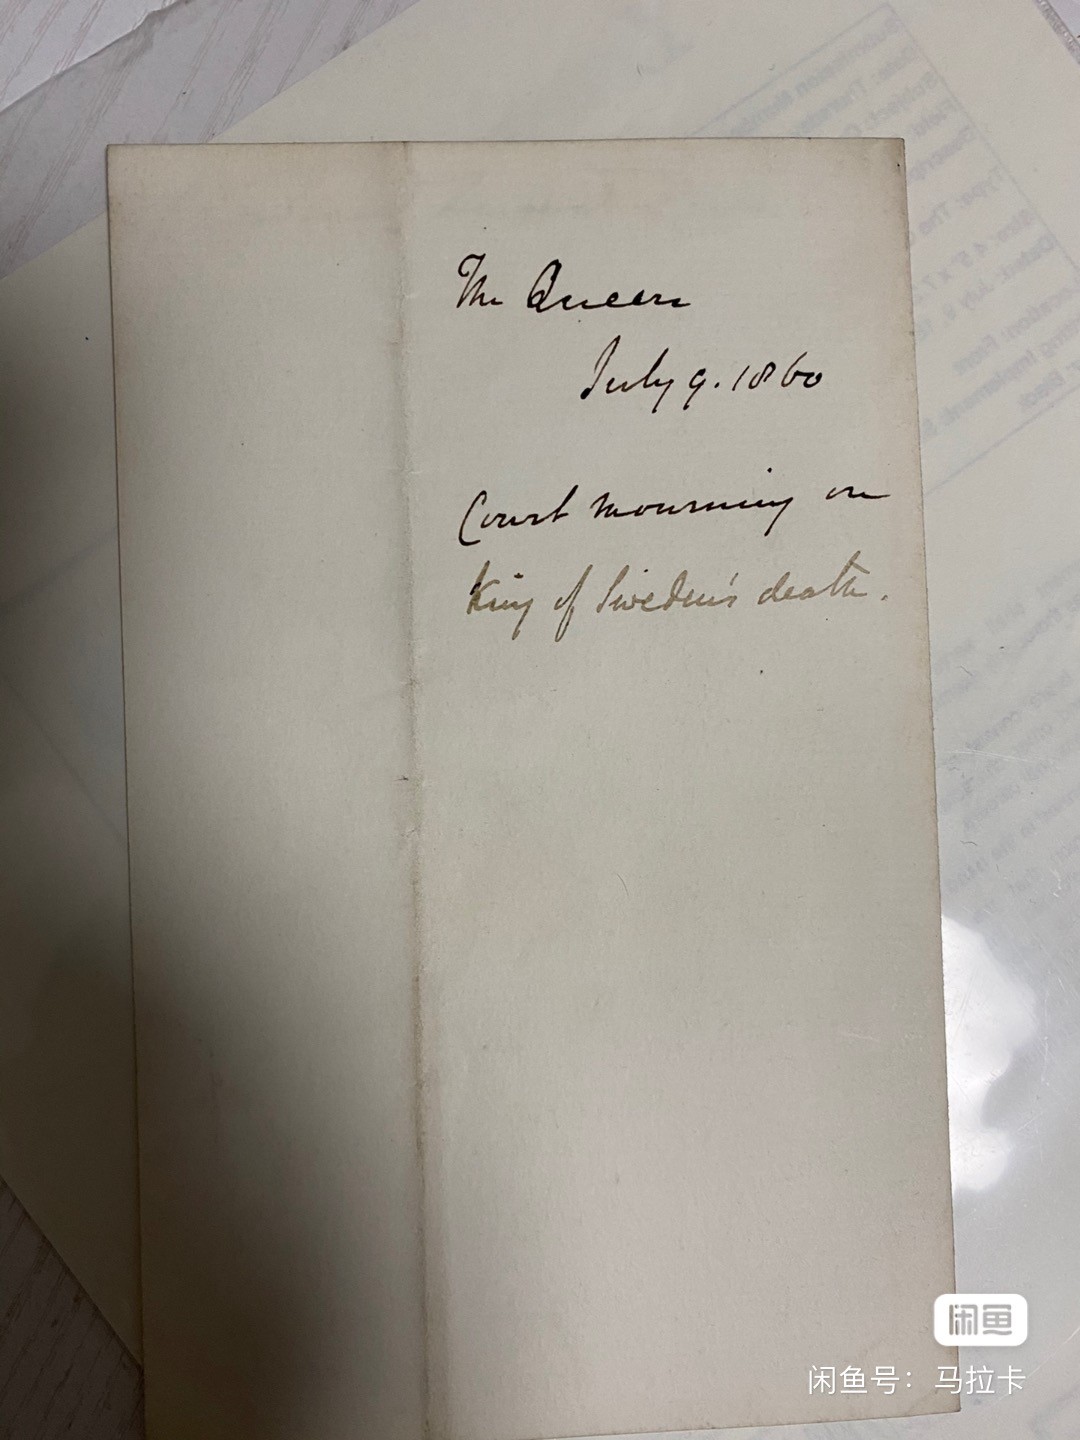 The Queen
July 9. 1860
Court mourning on
King of Sweden's death.
闲鱼
闲鱼号：马拉卡